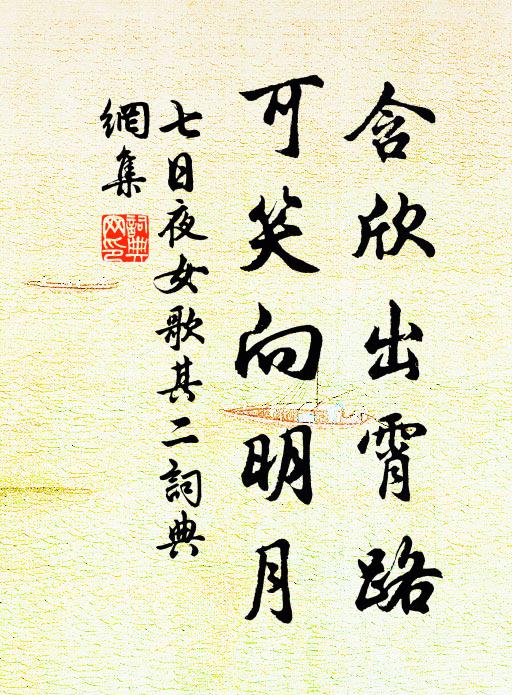 含欣出霄路
可笑向明月
七日夜女歌其二詞典
網集
詞典
网印